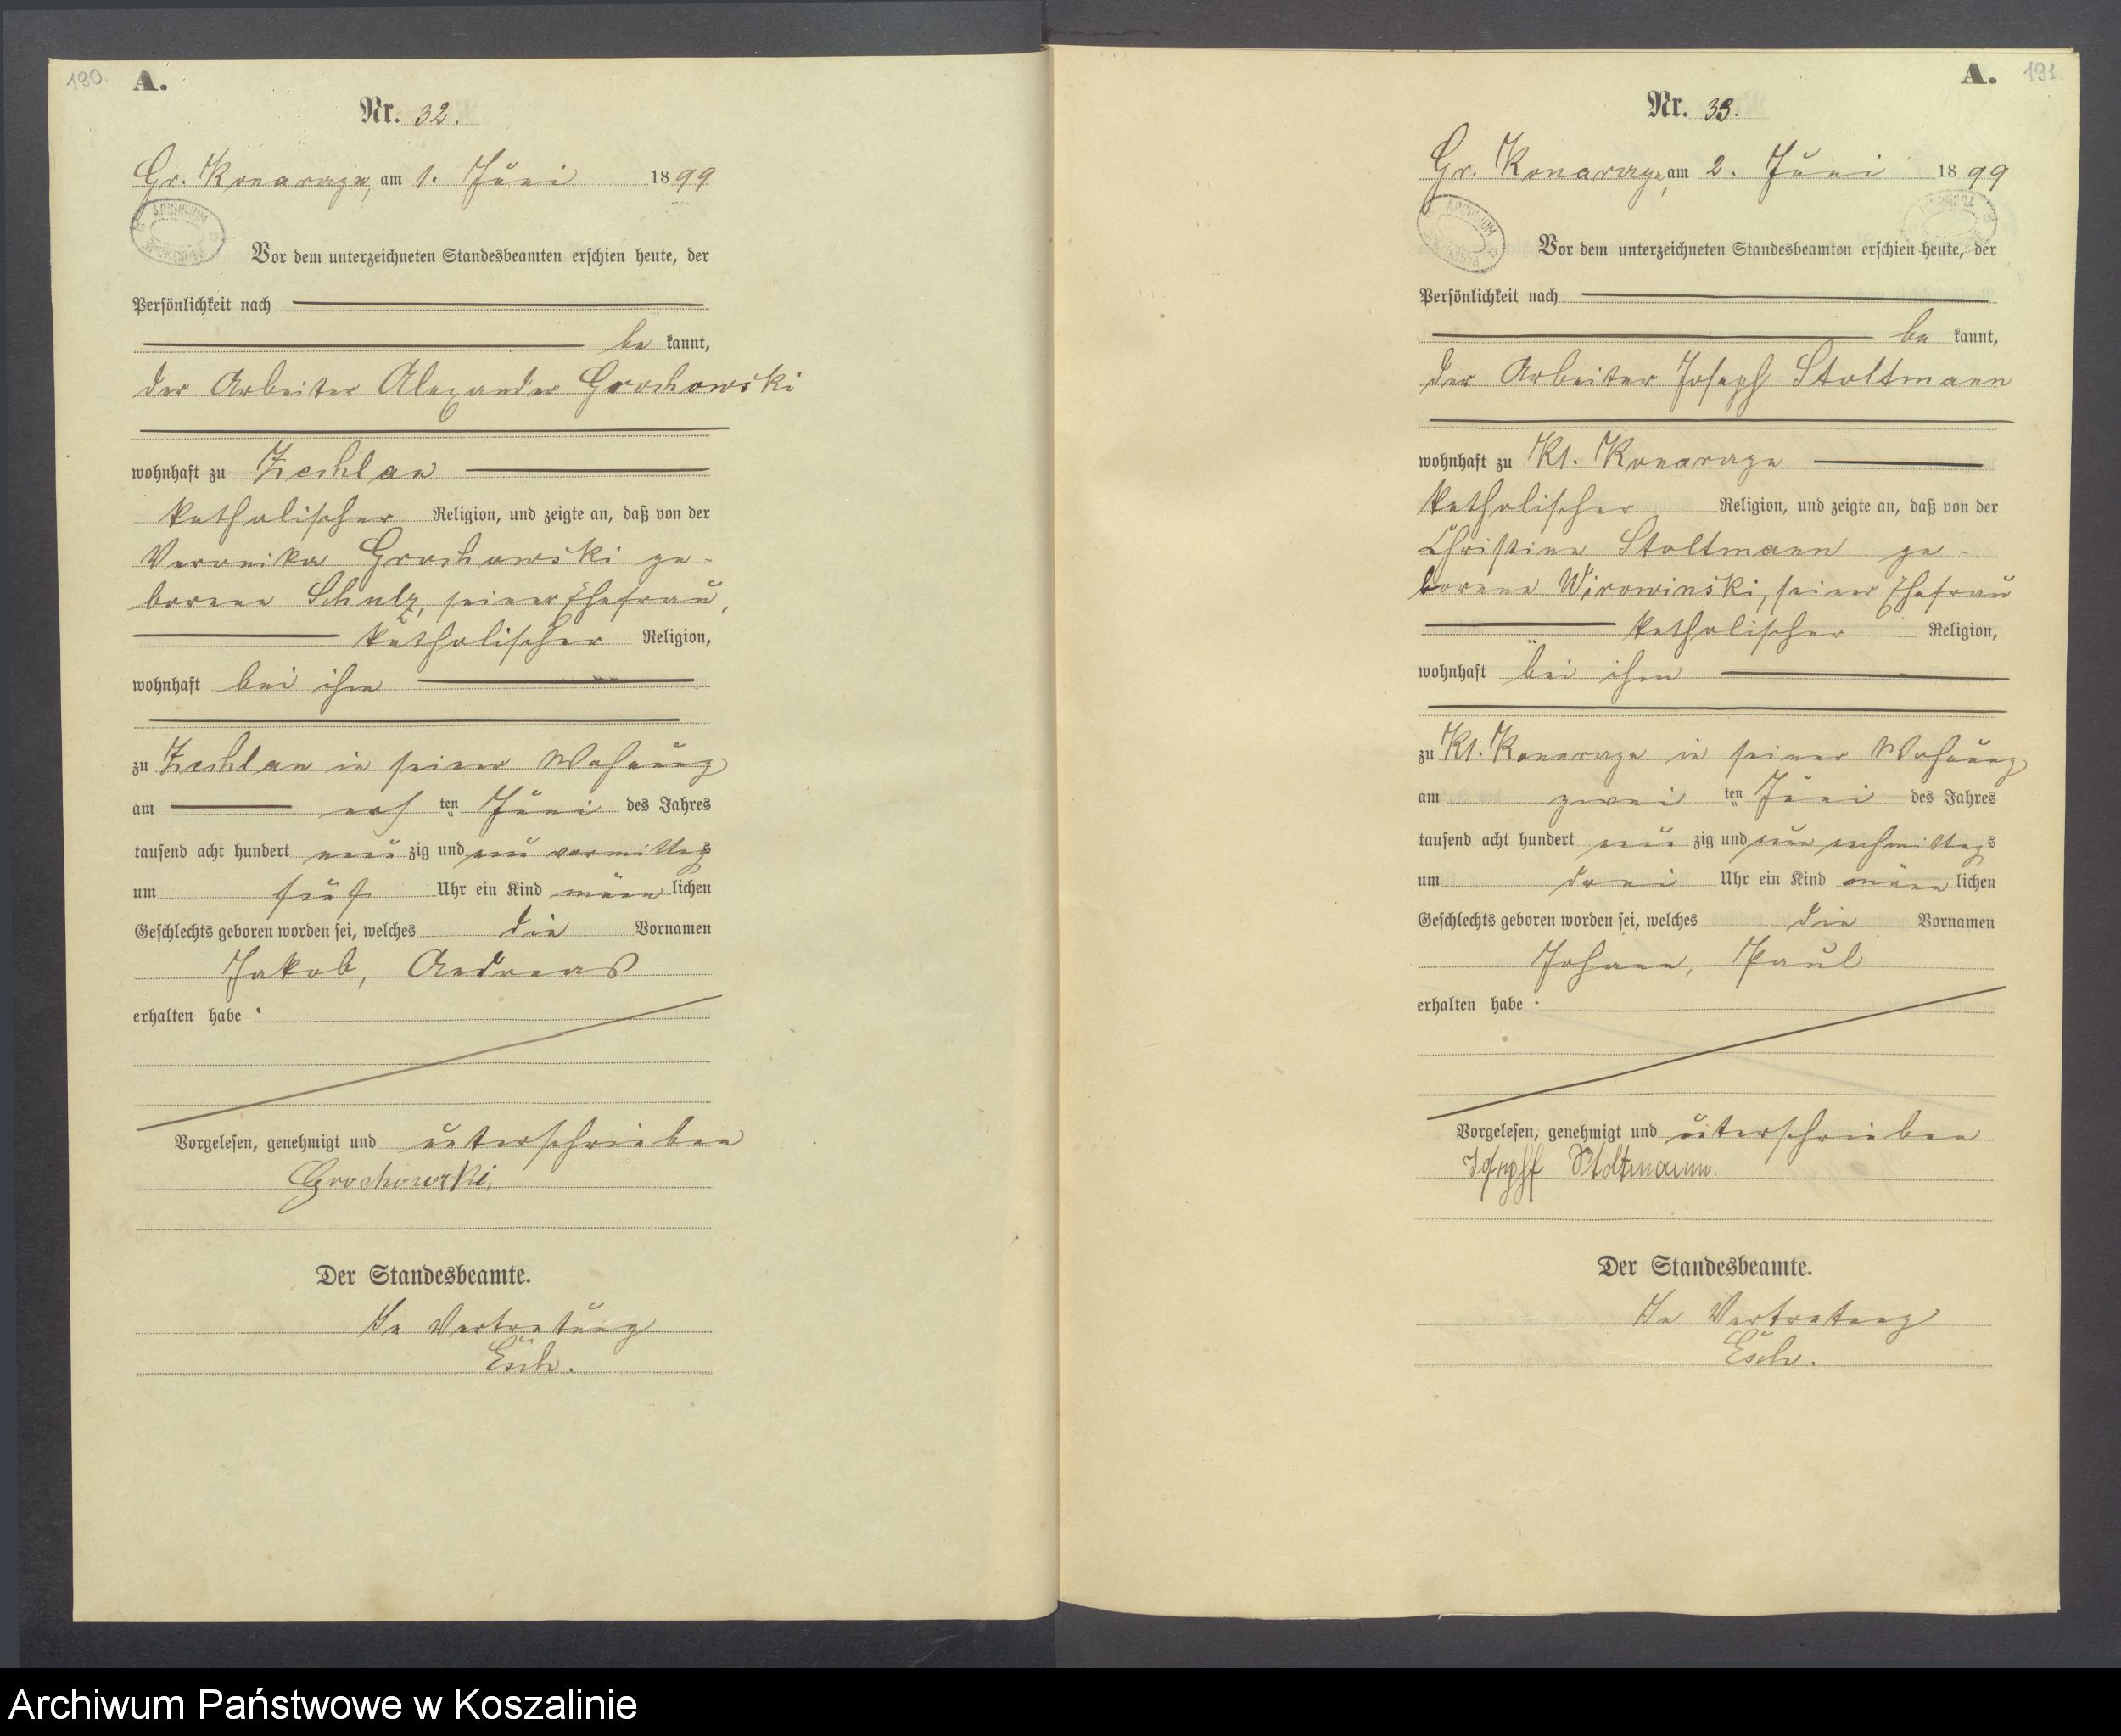 190.
A.
Nr. 32.
Gr. Konarzyn, am 1. Juni 1899
ARCHIWUM
Vor dem unterzeichneten Standesbeamten erschien heute, der
Persönlichkeit nach
be kannt,
der Arbeiter Alexander Grochowski
wohnhaft zu Zechlau
katholischer Religion, und zeigte an, daß von der
Veronika Grochowski ge-
borene Schulz, seiner Ehefrau,
katholischer Religion,
wohnhaft bei ihm
zu Zechlau in seiner Wohnung
am ers ten Juni des Jahres
tausend acht hundert neun zig und neun vormittags
um fünf Uhr ein Kind männ lichen
Geschlechts geboren worden sei, welches die Vornamen
Jakob, Andreas
erhalten habe.
Vorgelesen, genehmigt und unterschrieben
Grochowski,
Der Standesbeamte.
In Vertretung
Esch.
A.
191.
Nr. 33.
Gr. Konarzyn, am 2. Juni 1899
ARCHIWUM
Vor dem unterzeichneten Standesbeamten erschien heute, der
Persönlichkeit nach
be kannt,
der Arbeiter Joseph Stoltmann
wohnhaft zu Kl. Konarzyn
katholischer Religion, und zeigte an, daß von der
Christine Stoltmann ge-
borene Wirowinski, seiner Ehefrau
katholischer Religion,
wohnhaft bei ihm
zu Kl. Konarzyn in seiner Wohnung
am zwei ten Juni des Jahres
tausend acht hundert neun zig und neun nachmittags
um drei Uhr ein Kind männ lichen
Geschlechts geboren worden sei, welches die Vornamen
Johann, Paul
erhalten habe.
Vorgelesen, genehmigt und unterschrieben
Joseph Stoltmann.
Der Standesbeamte.
In Vertretung
Esch.
Archiwum Państwowe w Koszalinie